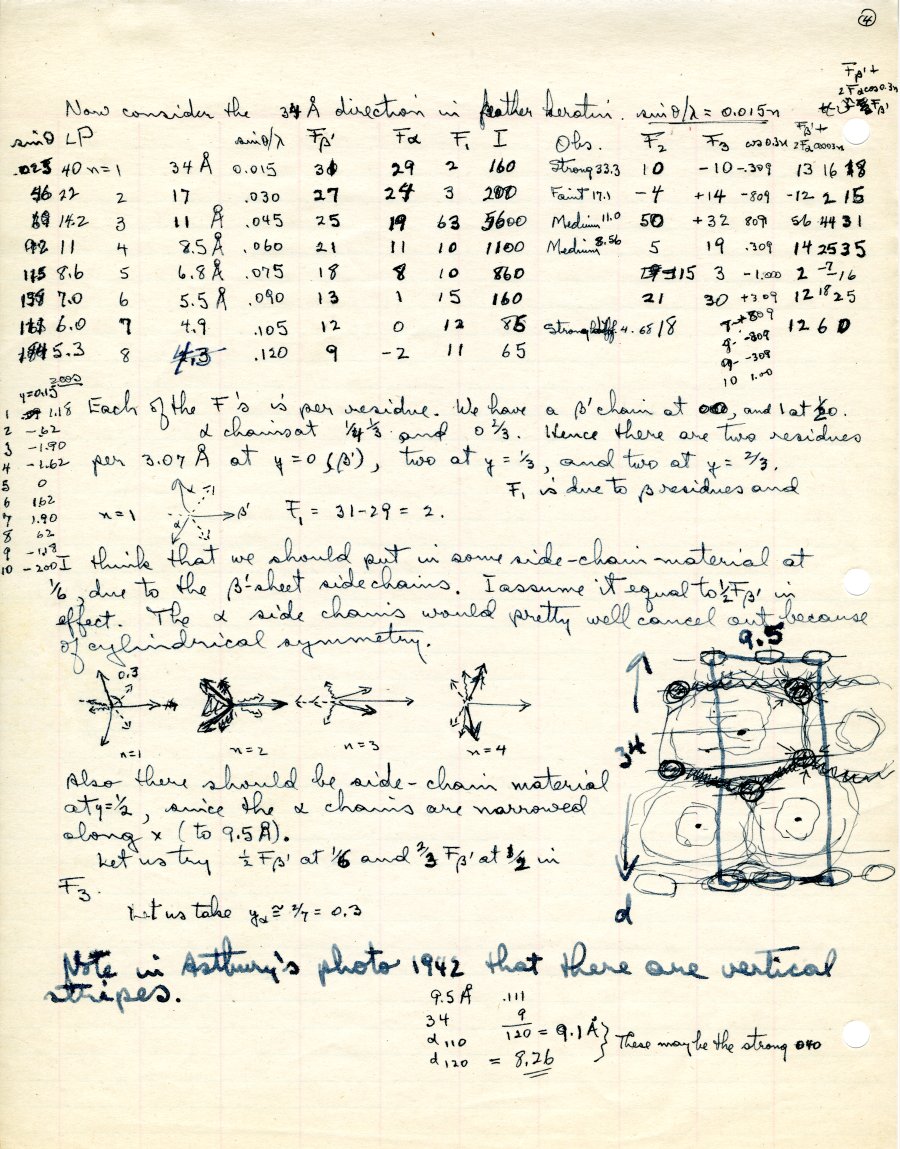 4
Now consider the 34 Å direction in feather keratin. sin θ/λ = 0.015n
sin θ LP sin θ/λ Fβ' Fα F₁ I Obs. F₂ F₃ cos 0.3n Fβ' + 2Fα cos 0.3n
.025 40 n=1 34 Å 0.015 30 29 2 160 Strong 33.3 10 -10 -.309 13 16 18
22 2 17 .030 27 24 3 200 Faint 17.1 -4 +14 -809 -12 2 15
14.2 3 11 Å .045 25 19 63 5600 Medium 11.0 50 +32 809 56 44 31
92 11 4 8.5 Å .060 21 11 10 1100 Medium 8.56 5 19 .309 14 25 35
115 8.6 5 6.8 Å .075 18 8 10 860 15 3 -1.000 2 -7 -16
7.0 6 5.5 Å .090 13 1 15 160 21 30 +309 12 18 25
6.0 7 4.9 .105 12 0 12 85 Strong diff 4.68 18 7- +809 12 6 0
5.3 8 4.3 .120 9 -2 11 65 8- -809
9- -309
10 1.00
y=0.15
1 1.18
2 -.62
3 -1.90
4 -1.62
5 0
6 1.62
7 1.90
8 62
9 -1.18
10 -200
Each of the F's is per residue. We have a β' chain at 00, and 1 at ½0.
α chains at ¼ ⅓ and 0 ⅔. Hence there are two residues
per 3.07 Å at y=0 (β'), two at y = ⅓, and two at y = ⅔.
F₁ is due to β residues and
n=1 α β' F₁ = 31-29 = 2.
I think that we should put in some side-chain material at
⅙, due to the β'-sheet sidechains. I assume it equal to ½Fβ' in
effect. The α side chains would pretty well cancel out because
of cylindrical symmetry.
0.3
n=1 n=2 n=3 n=4
9.5
34
d
Also there should be side-chain material
at y=½, since the α chains are narrowed
along x (to 9.5 Å).
Let us try ½ Fβ' at ⅙ and ⅔ Fβ' at ½ in
F₃.
Let us take yα ≅ 2/7 = 0.3
Note in Astbury's photo 1942 that there are vertical
stripes.
9.5 Å .111
34 9
d110 120 = 9.1 Å
d120 = 8.26
These may be the strong 040